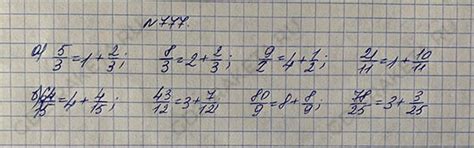 №777.
а) 5/3 = 1 + 2/3; 8/3 = 2 + 2/3; 9/2 = 4 + 1/2; 21/11 = 1 + 10/11
б) 64/15 = 4 + 4/15; 43/12 = 3 + 7/12; 80/9 = 8 + 8/9; 78/25 = 3 + 3/25